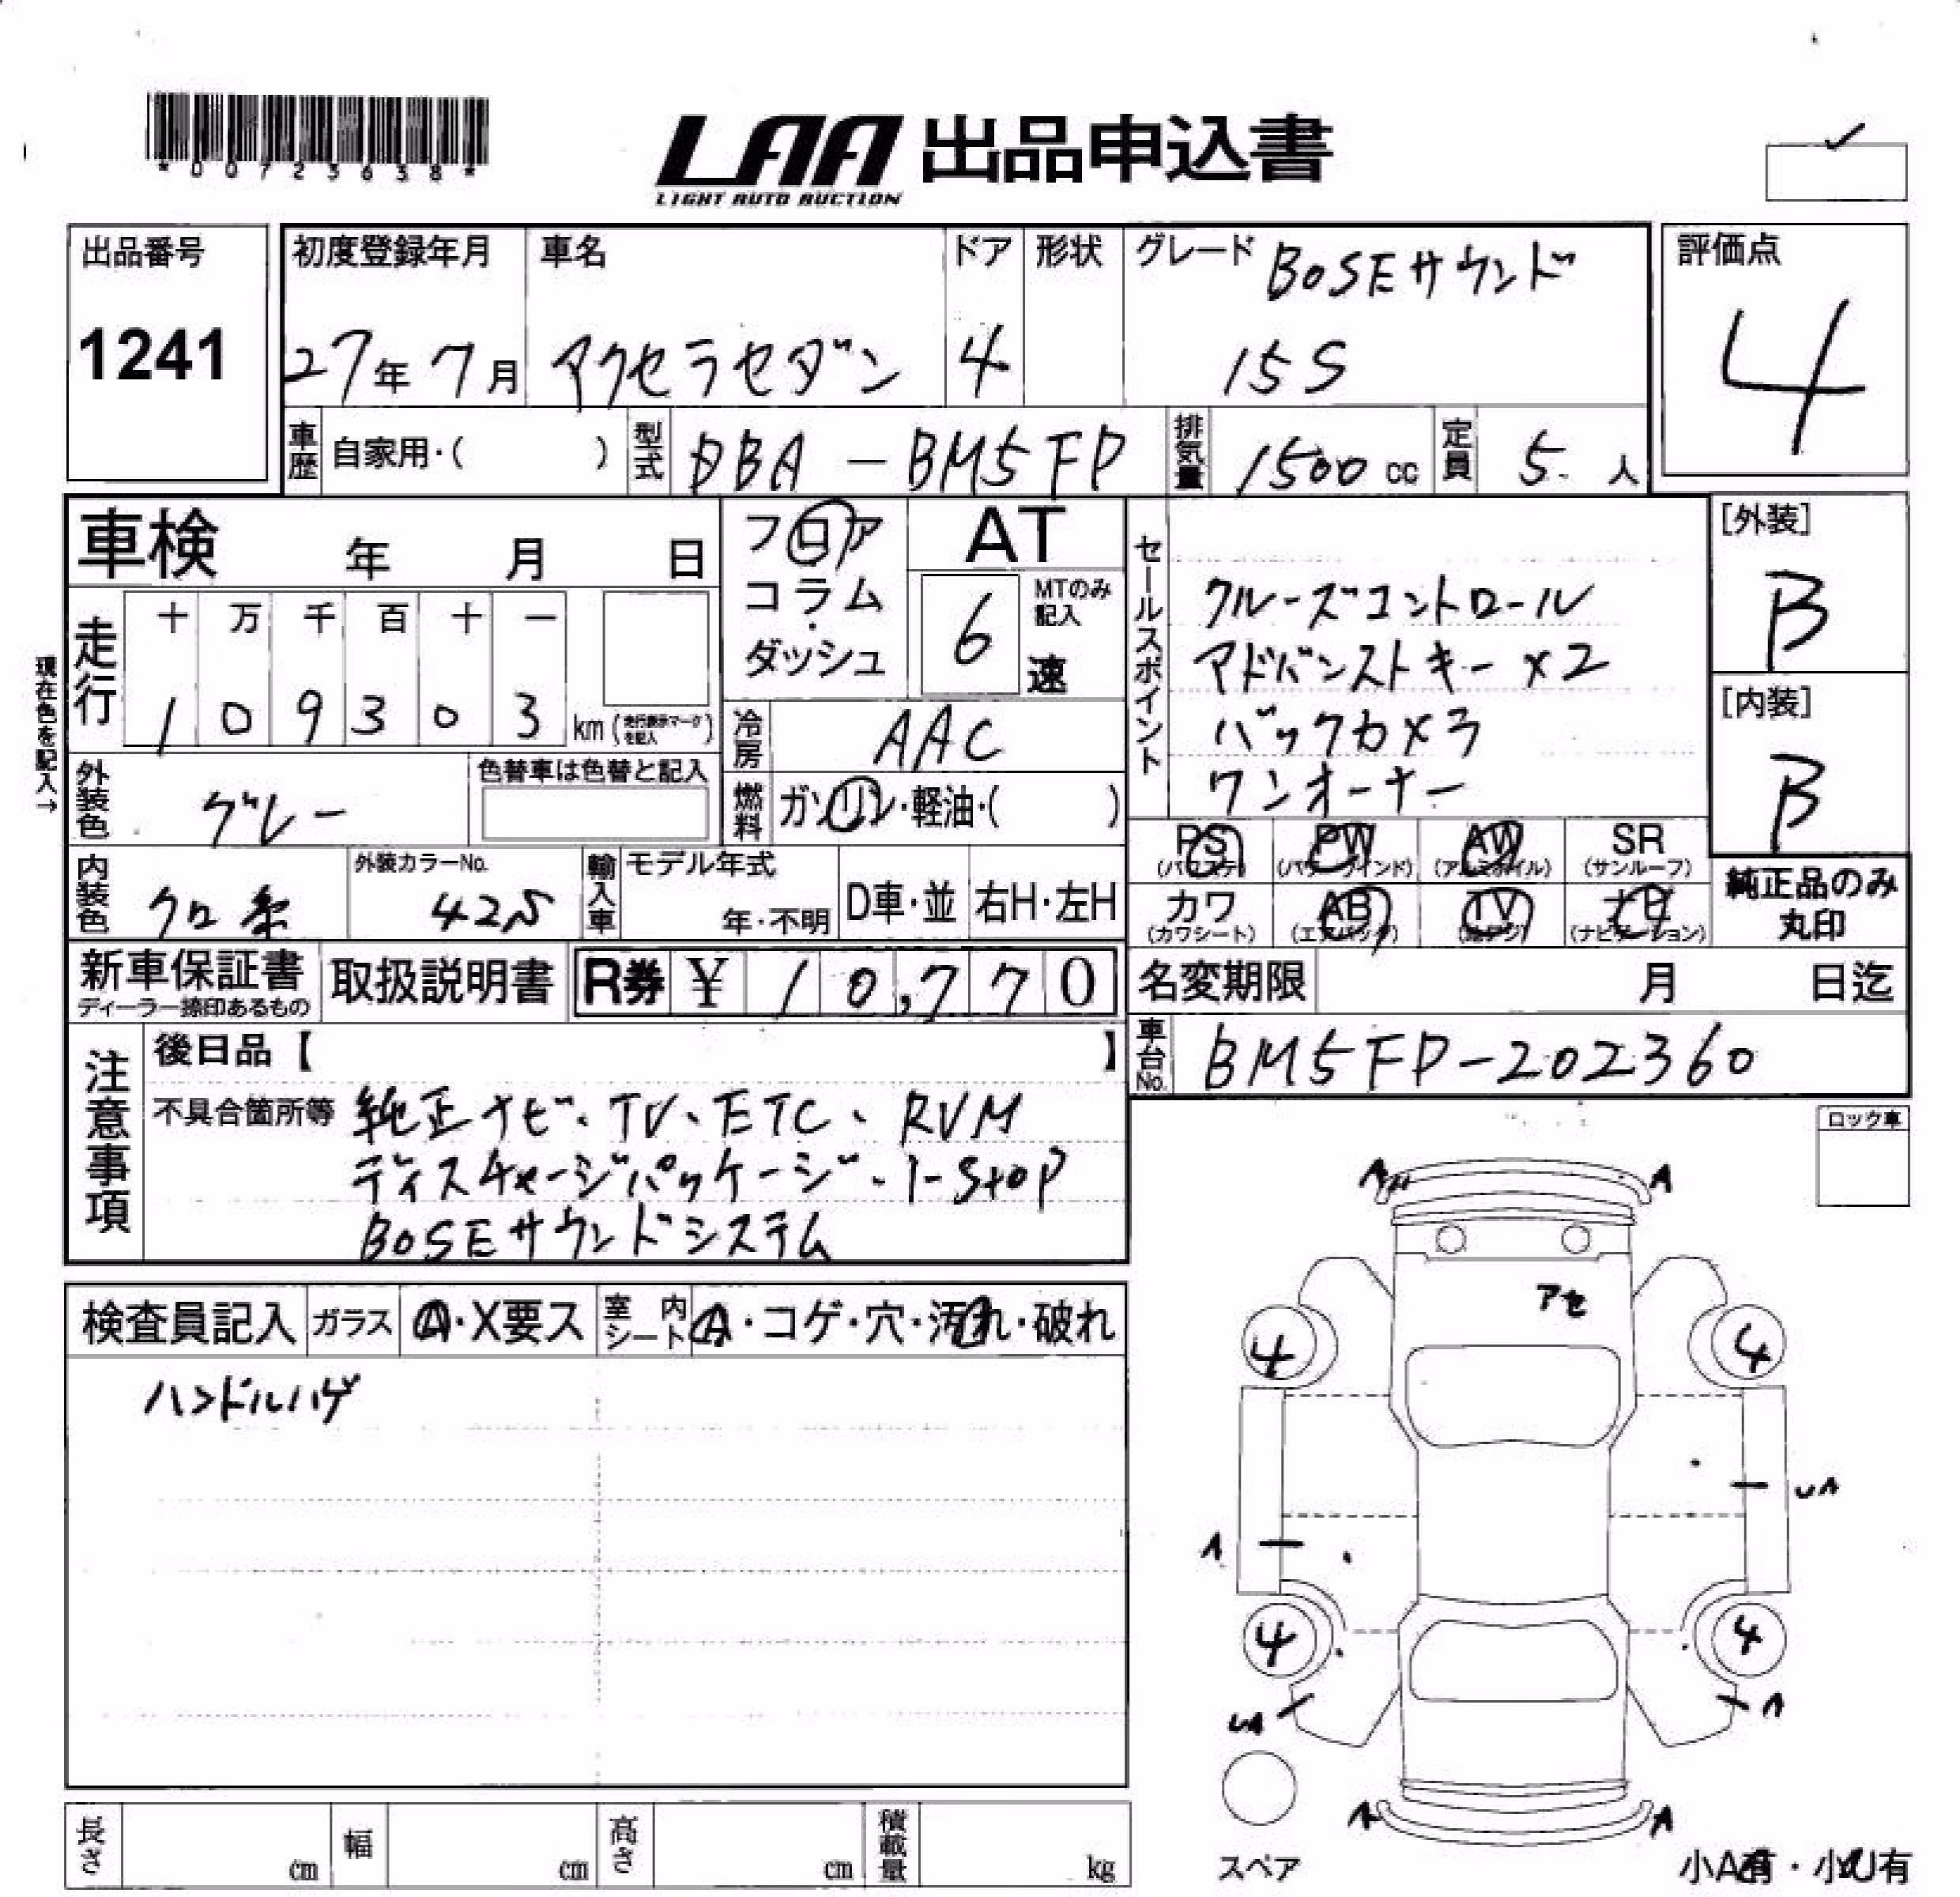 *00723638*
LAA 出品申込書
LIGHT AUTO AUCTION
出品番号
1241
初度登録年月
27年 7月
車名
アクセラセダン
ドア
4
形状
グレード BOSEサウンド
15S
評価点
4
車歴 自家用・( )
型式 DBA - BM5FP
排気量 1500 cc
定員 5 人
車検 年 月 日
フロア
コラム
・
ダッシュ
AT
6 MTのみ記入
速
セールスポイント
クルーズコントロール
アドバンストキー ×2
バックカメラ
ワンオーナー
[外装]
B
[内装]
B
現在色を記入→
走行
十 万 千 百 十 一
1 0 9 3 0 3 km (走行表示マークを記入)
冷房 AAC
外装色 グレー
色替車は色替と記入
燃料 ガソリン・軽油・( )
PS (パワステ)
PW (パワーウインド)
AW (アルミホイル)
SR (サンルーフ)
カワ (カワシート)
AB (エアバッグ)
TV (地デジ)
ナビ (ナビゲーション)
純正品のみ
丸印
内装色 クロ系
外装カラーNo.
42S
輸入車 モデル年式
年・不明
D車・並
右H・左H
新車保証書
ディーラー捺印あるもの
取扱説明書
R券 ¥ 10,770
名変期限 月 日迄
車台No. BM5FP-202360
注意事項
後日品【 】
不具合箇所等 純正ナビ、TV、ETC、RVM
ディスチャージパッケージ、i-stop
BOSEサウンドシステム
ロック車
検査員記入 ガラス A・X要ス 室内シート A・コゲ・穴・汚れ・破れ
ハンドルハゲ
A A
アセ
4 4
UA
A
4 4
UA A
スペア
A A
小A有・小U有
長さ cm
幅 cm
高さ cm
積載量 kg